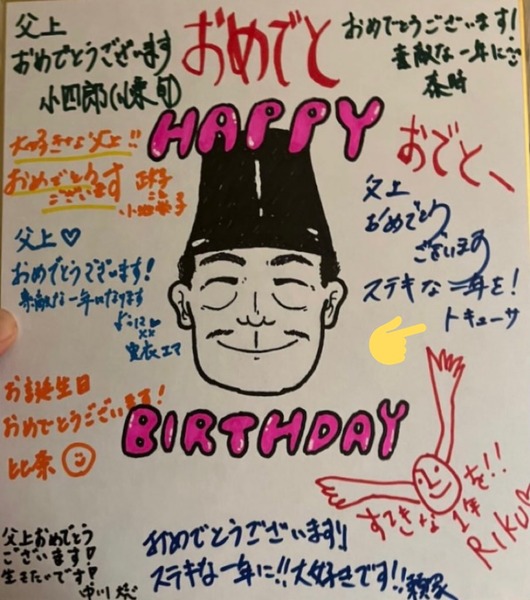 父上
おめでとうございます
小四郎
おめでと
おめでとうございます!
素敵な一年に
HAPPY
大好きな父上!!
おめでとう
ございます
おでと、
父上
おめでとう
ございます
ステキな一年を!
トキューサ
父上♡
おめでとうございます!
素敵な一年になります
ように♡
××
エマ
お誕生日
おめでとうございます!
比奈
BIRTHDAY
すてきな1年を!!
RIKU
父上おめでとう
ございます!
生きたいです!
中川
おめでとうございます!!
ステキな一年に!!大好きです!!